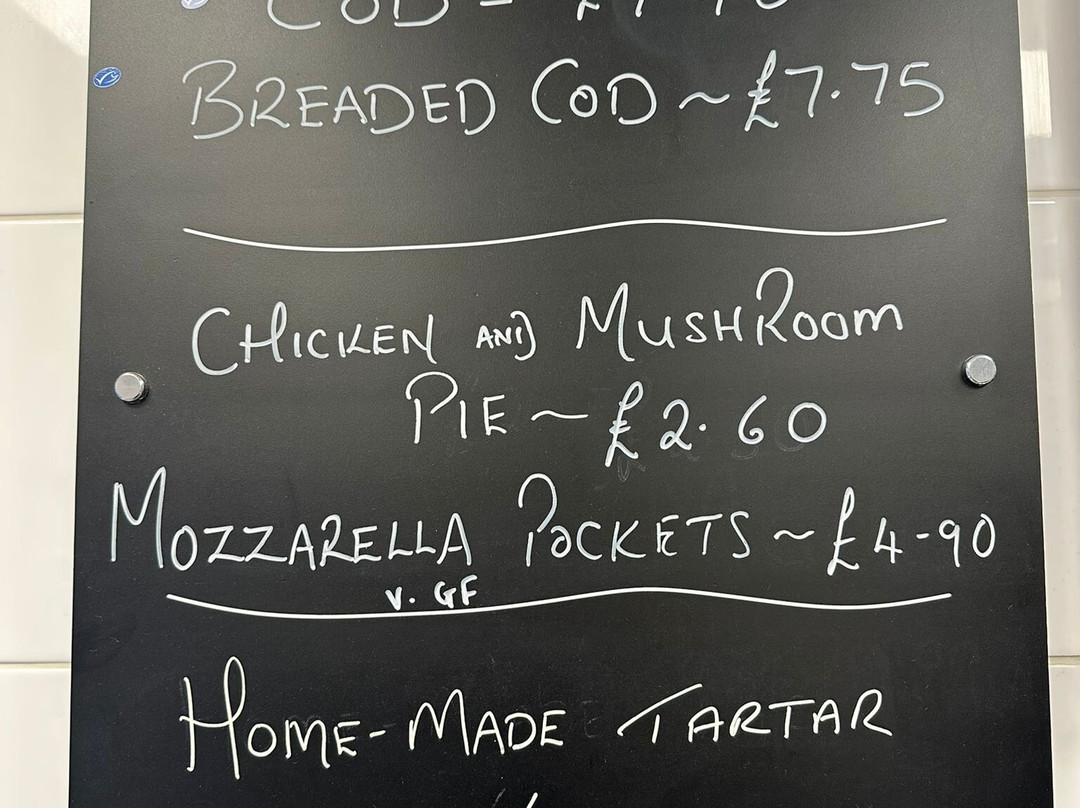 COD
BREADED COD ~ £7.75
CHICKEN AND MUSHROOM
PIE ~ £2.60
MOZZARELLA POCKETS ~ £4-90
V. GF
HOME-MADE TARTAR